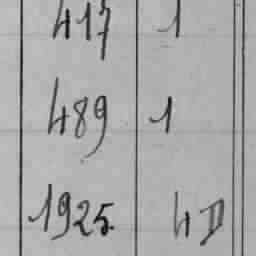 417 1
489 1
1925. 4 D